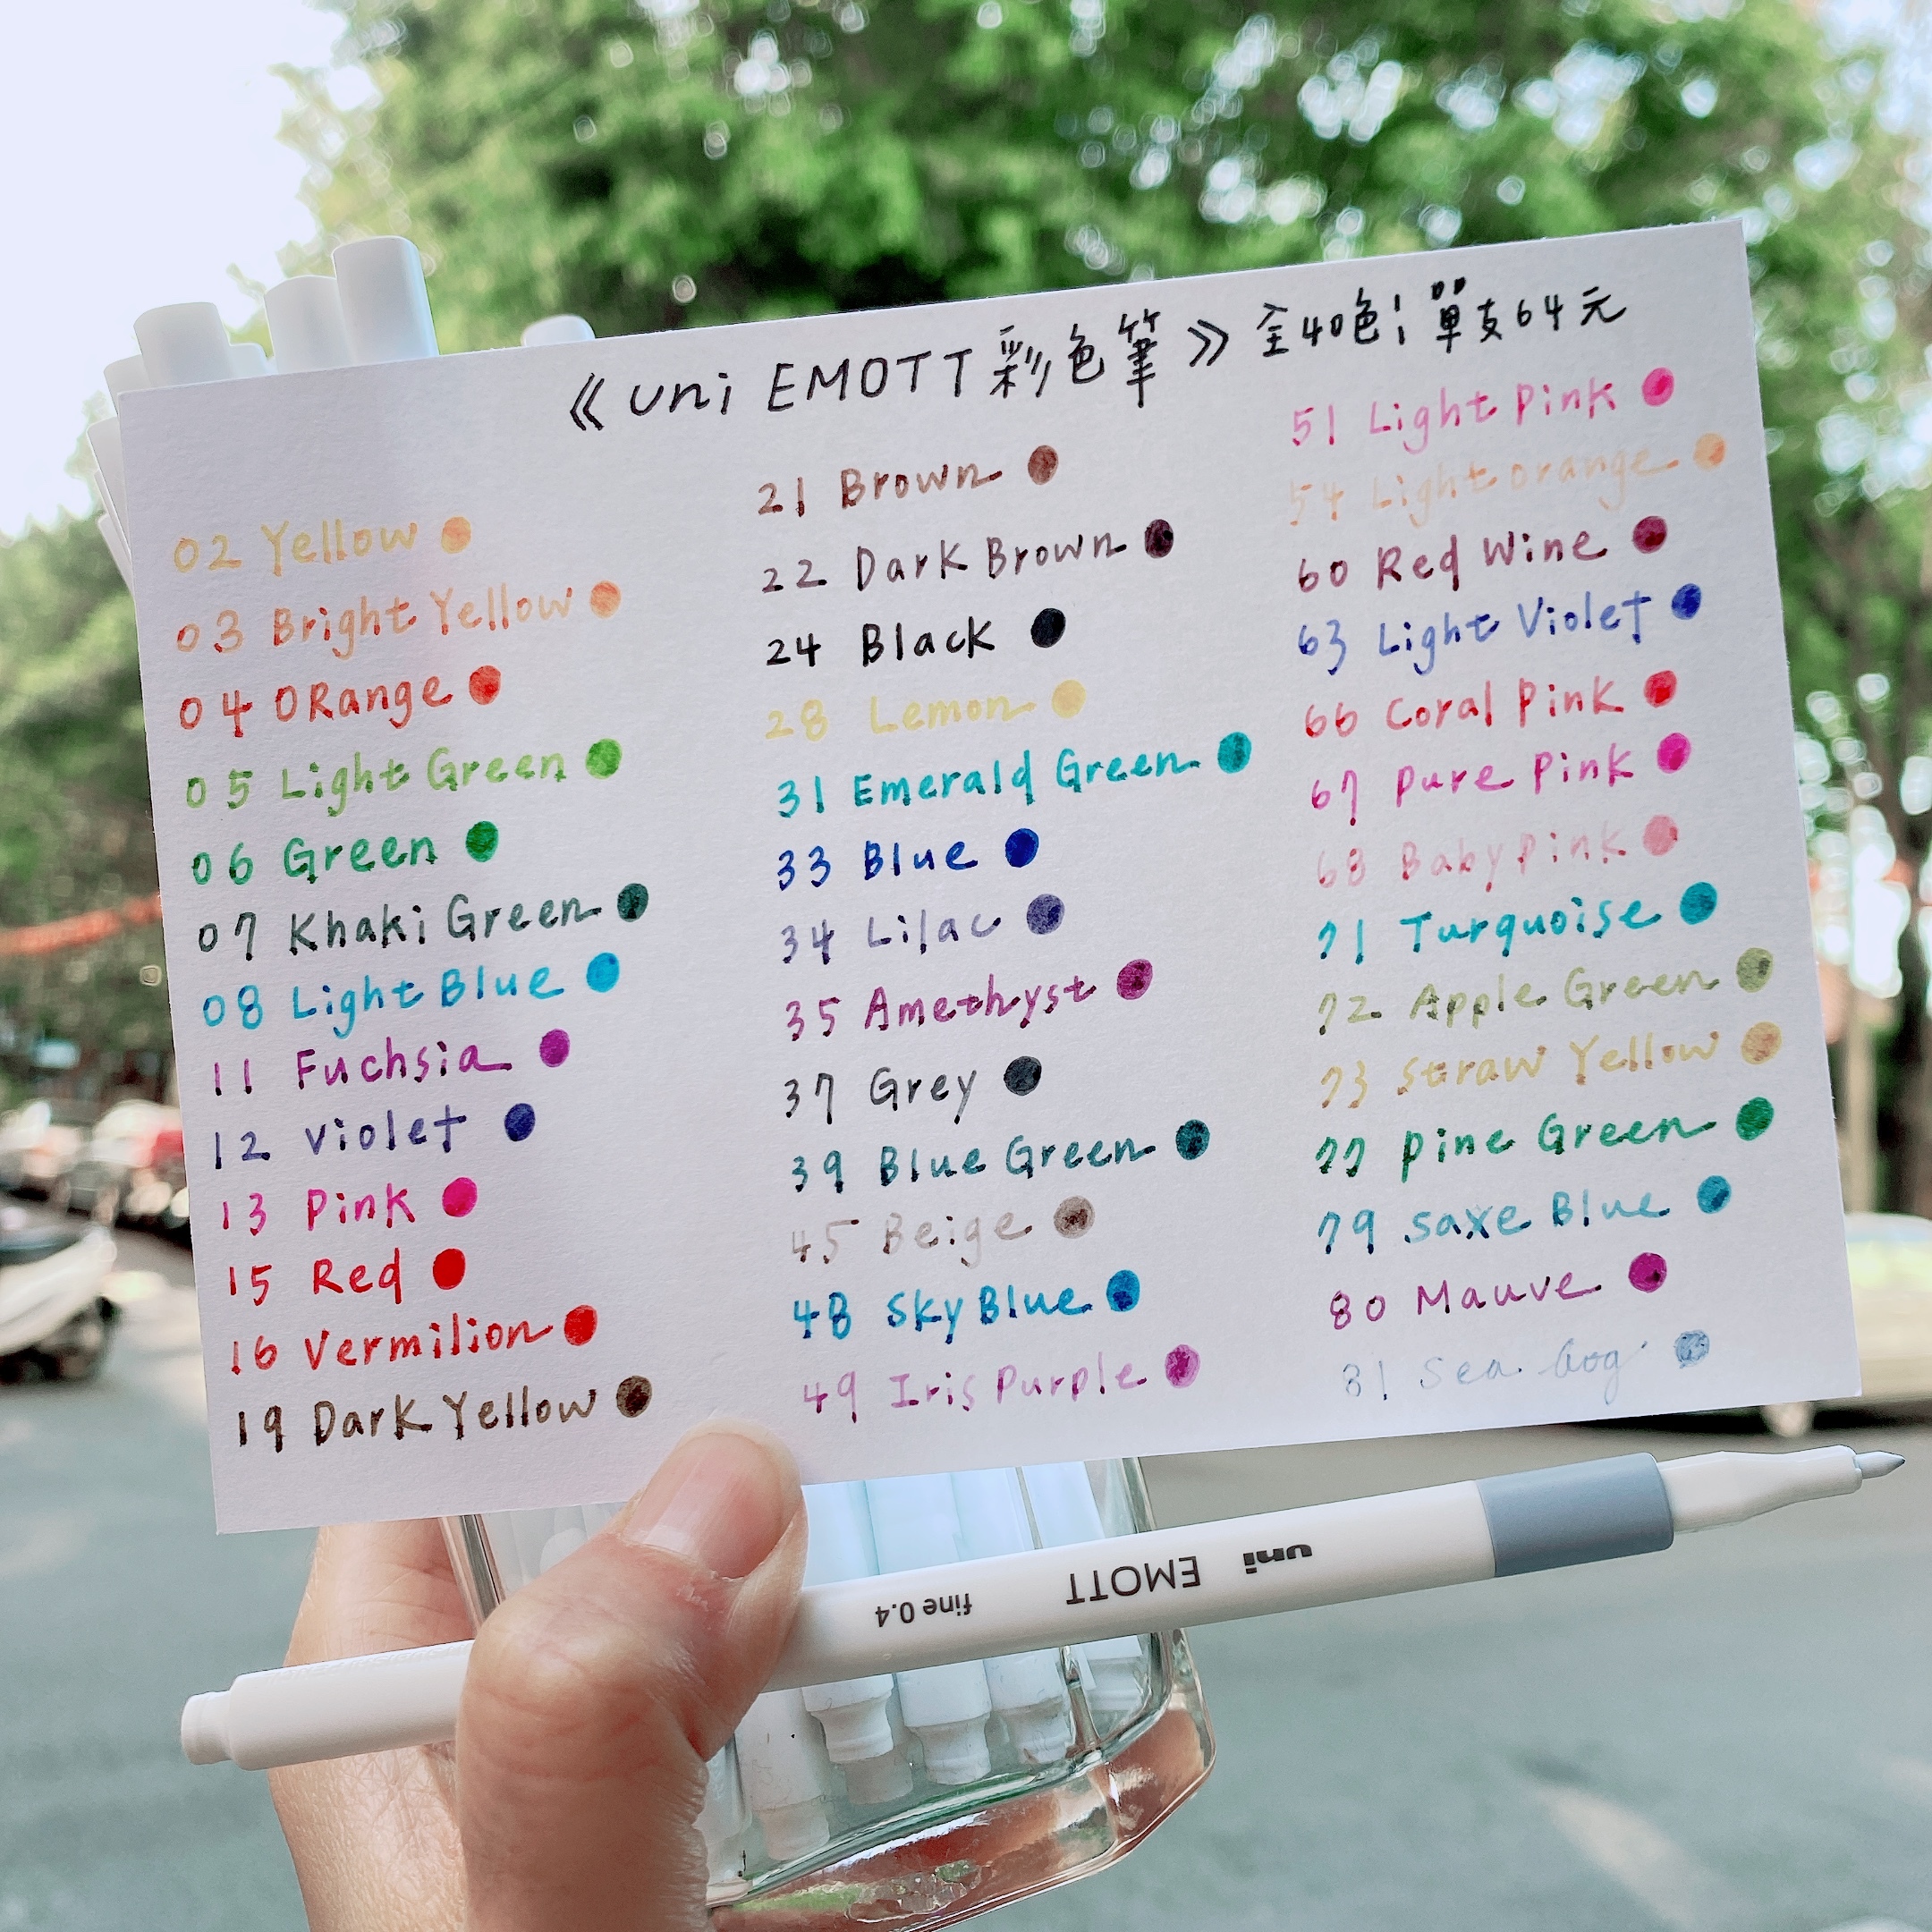 《 uni EMOTT 彩色筆 》 全40色! 單支64元
02 Yellow
03 Bright Yellow
04 ORange
05 Light Green
06 Green
07 Khaki Green
08 Light Blue
11 Fuchsia
12 Violet
13 Pink
15 Red
16 Vermilion
19 Dark Yellow
21 Brown
22 Dark Brown
24 Black
28 Lemon
31 Emerald Green
33 Blue
34 Lilac
35 Amethyst
37 Grey
39 Blue Green
45 Beige
48 Sky Blue
49 Iris Purple
51 Light Pink
54 Light orange
60 Red Wine
63 Light Violet
66 Coral Pink
67 Pure Pink
68 Baby pink
71 Turquoise
72 Apple Green
73 Straw Yellow
77 Pine Green
79 Saxe Blue
80 Mauve
81 Sea
uni EMOTT fine 0.4